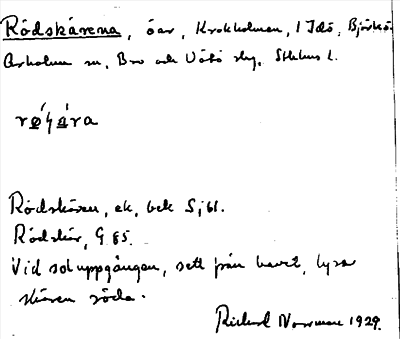 Rödskärena, öar, Krokholmen, 1 Idö, Björkö-
Arholma sn, Bro och Vätö skg, Sthlms l.
Rödskären, ek, bek S;61.
Rödskär, G 85.
Vid soluppgången, sett från havet, lysa
skären röda.
Rickard Norrman 1929.